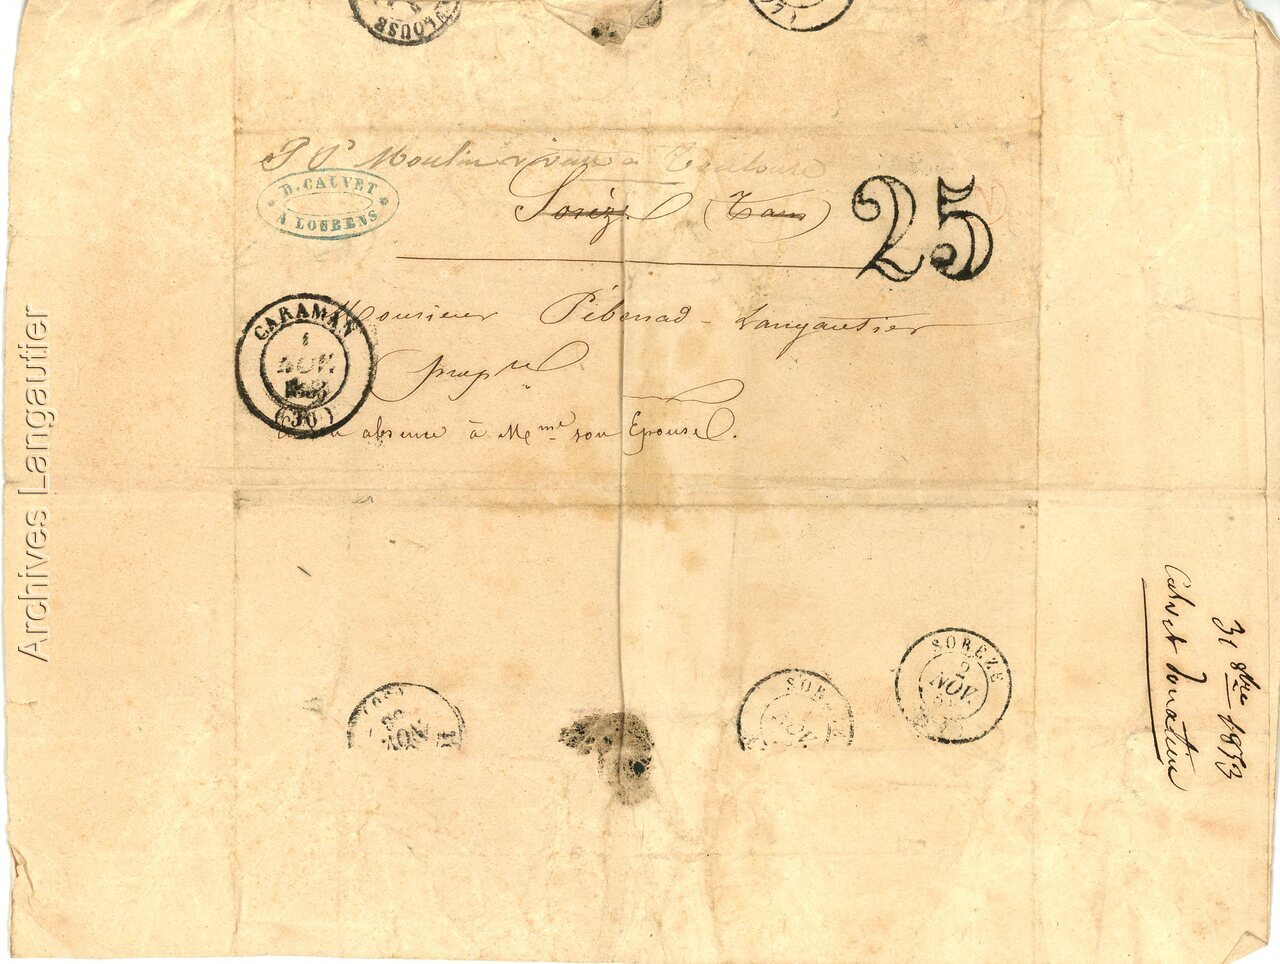 TOULOUSE
Moulin à Toulouse
D. CALVET
A LOUBENS
Sorèze (Tarn)
25
CARAMAN
1
NOV.
(30)
Monsieur Pébernad-Langautier
absence à Mme son Epouse.
SOREZE
2
NOV.
SOR
NOV
NOV.
31 8bre 1853
Calvet Donatien
Archives Langautier